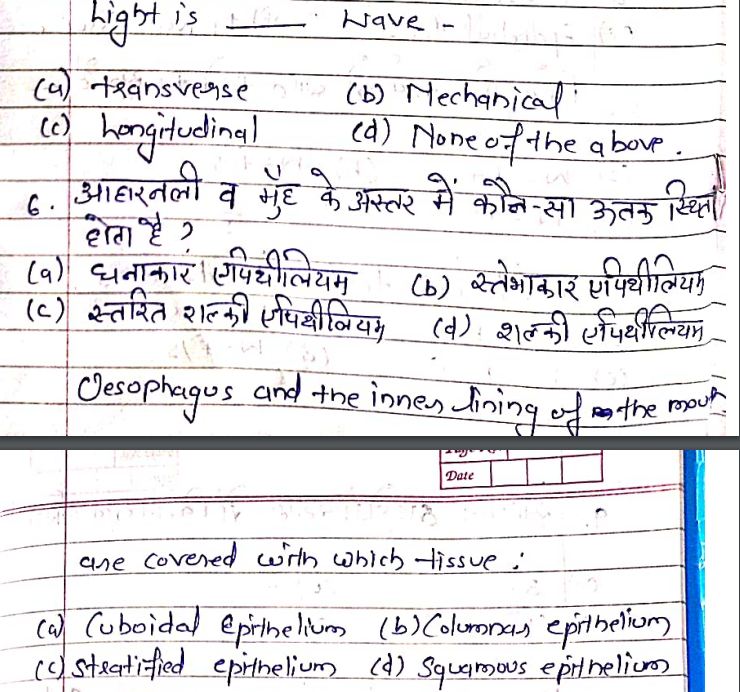 Light is ____ wave -
(a) transverse (b) Mechanical
(c) Longitudinal (d) None of the above.
6. आहारनली व मुँह के अस्तर में कौन-सा ऊतक स्थित
होता है ?
(a) घनाकार एपिथीलियम (b) स्तंभाकार एपिथीलियम
(c) स्तरित शल्की एपिथीलियम (d) शल्की एपिथीलियम
Oesophagus and the inner lining of the mouth
Date
are covered with which tissue :
(a) Cuboidal Epithelium (b) Columnar epithelium
(c) Stratified epithelium (d) Squamous epithelium